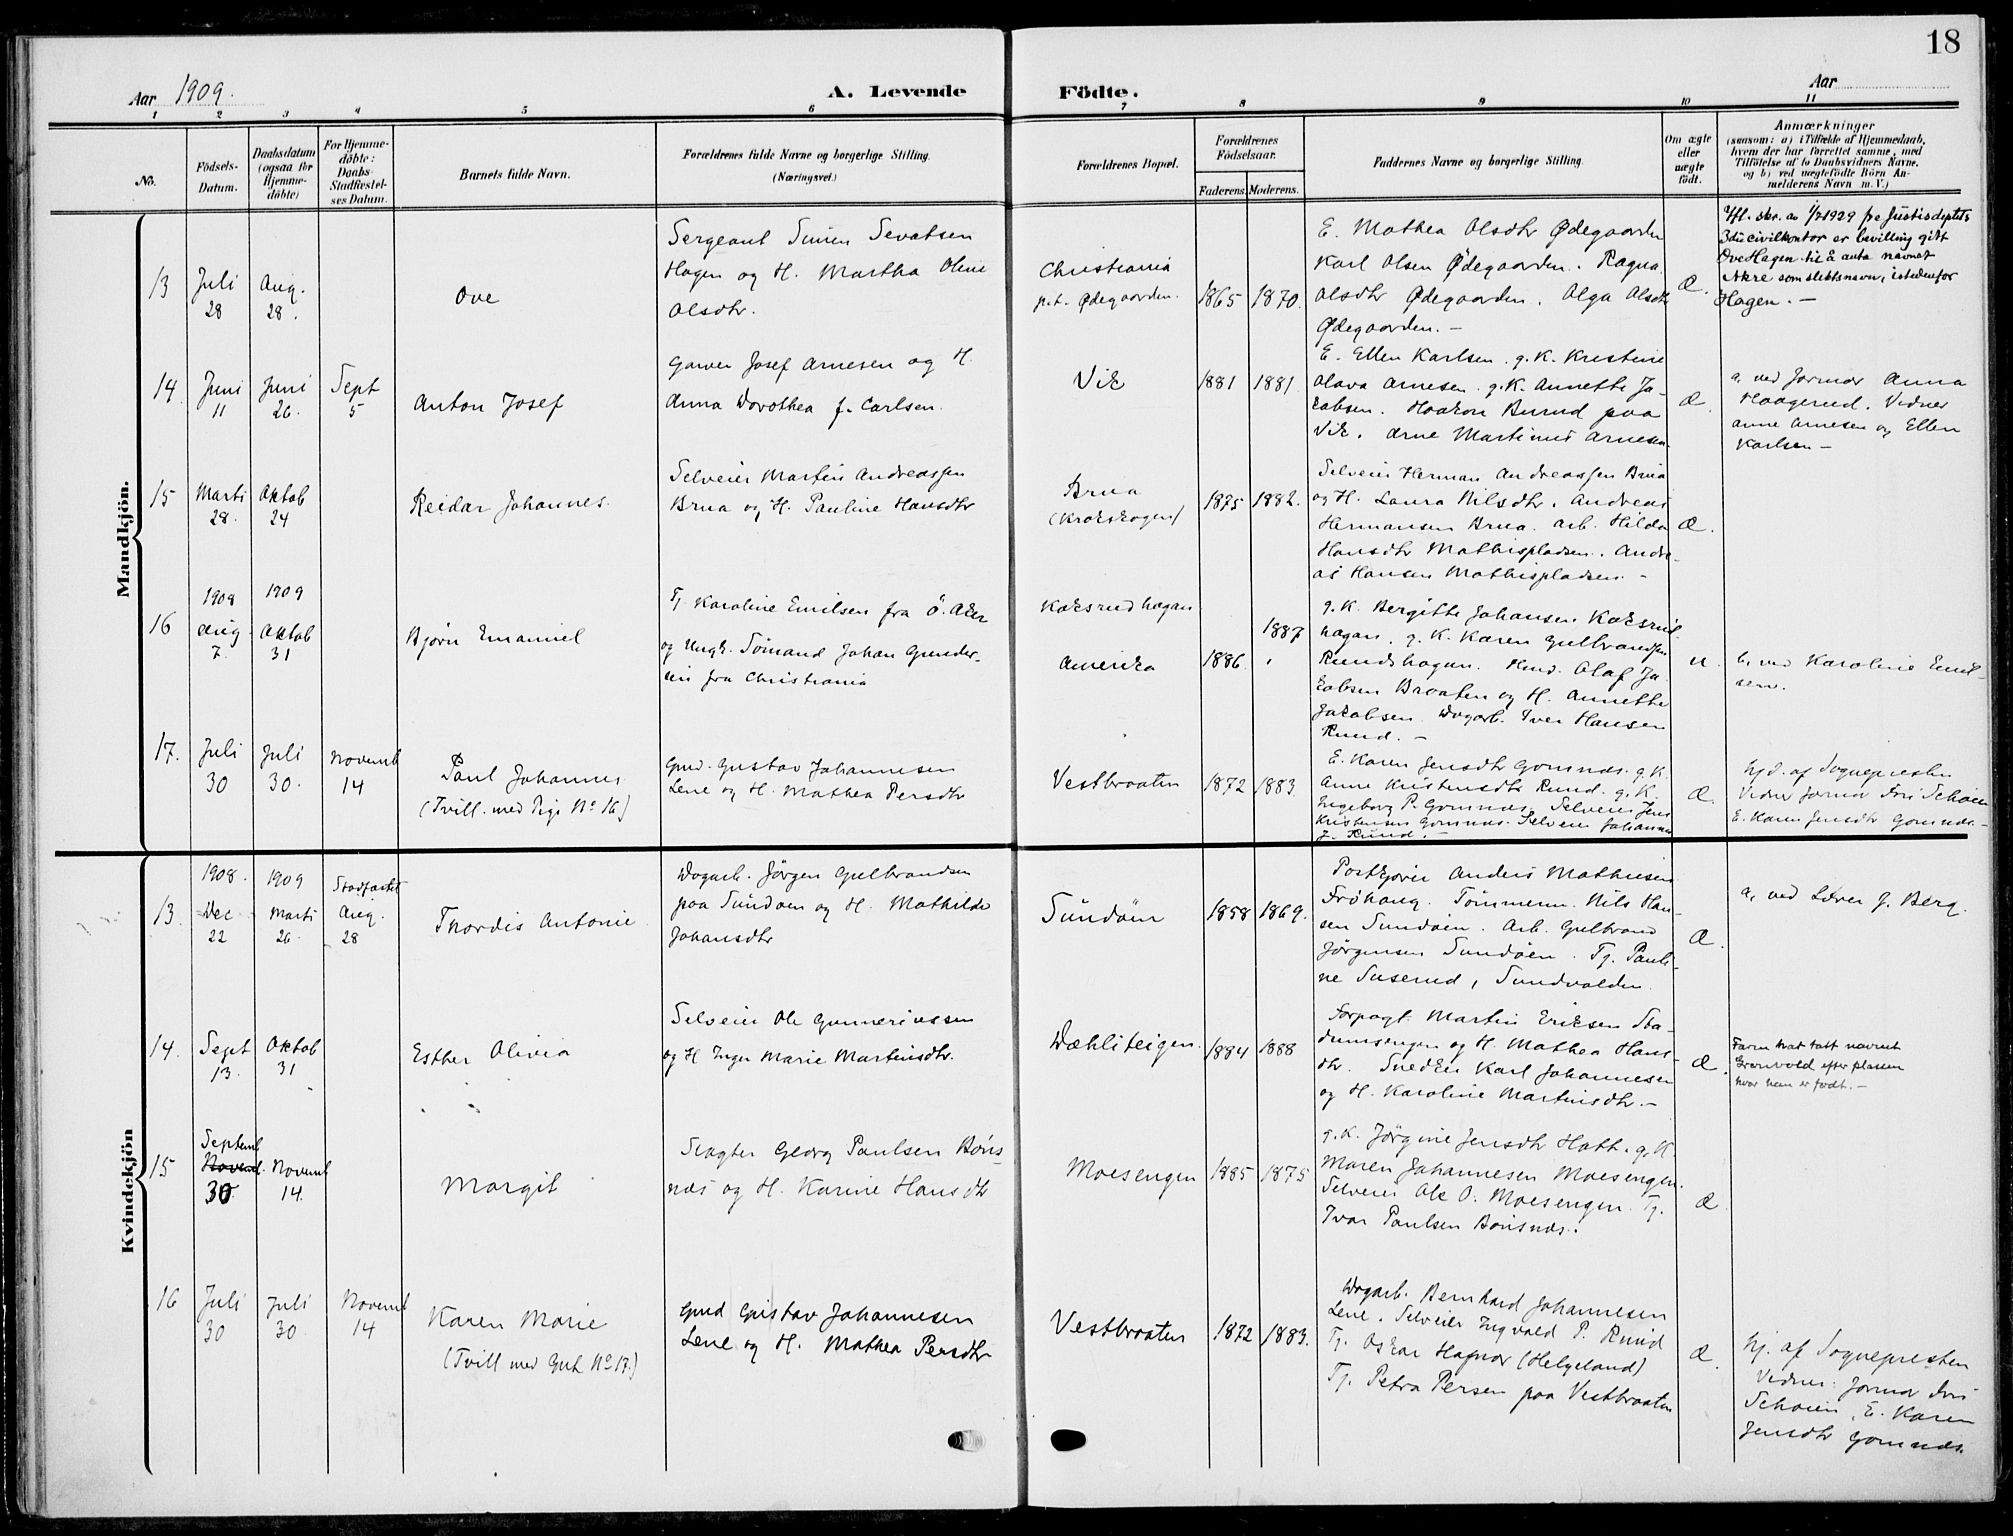 18
Aar 1909.
A. Levende Födte.
Aar
1 2 3 4 5 6 7 8 9 10 11
No.
Födsels-
Datum.
Daabsdatum
(ogsaa för
Hjemme-
döbte)
For Hjemme-
döbte:
Daabs-
Stadfæstel-
ses Datum.
Barnets fulde Navn.
Forældrenes fulde Navne og borgerlige Stilling.
(Næringsvei.)
Forældrenes Bopæl.
Forældrenes
Födselsaar.
Faderens. Moderens.
Faddernes Navne og borgerlige Stilling.
Om ægte
eller
uægte
födt.
Anmærkninger
(saasom: a) i Tilfælde af Hjemmedaab,
hvem der har forrettet samme, med
Tilföielse af to Daabsvidners Navne.
og b) ved uægtefödte Börn An-
melderens Navn m. V.)
Mandkjön.
13
Juli
28
Aug.
28.
Ove
Sergeant Simen Sevatsen
Hagen og H. Martha Oline
Olsdtr.
Christiania
p.t. Ødegaarden.
1865
1870.
E. Mathea Olsdtr Ødegaarden
Karl Olsen Ødegaarden. Ragna
Olsdtr Ødegaarden. Olga Olsdtr
Ødegaarden. –
Æ.
Ifl. skr. av 1/7 1929 fra Justisdeptets
3die civilkontor er bevilling gitt
Ove Hagen til å anta navnet
Akre som slektsnavn, istedenfor
Hagen. –
14.
Juni
11
Juni
26.
Sept
5
Anton Josef
Garver Josef Arnesen og H.
Anna Dorothea f. Carlsen.
Vik
1881
1881.
E. Ellen Karlsen. g. K. Kristine
Olava Arnesen. g. K. Annette Ja-
kobsen. Haakon Burud paa
Vik. Arne Martinus Arnesen
Æ.
a, ved Jormor Anna
Haagerud. Vidner
Anne Arnesen og Ellen
Karlsen –
15
Marti
28.
Oktob
24
Reidar Johannes.
Selveier Martin Andreassen
Brua og H. Pauline Hansdtr
Brua
(Krokskogen)
1875
1882.
Selveier Herman Andreassen Brua
og H. Laura Nilsdtr. Andreas
Hermansen Brua. Arb. Hilda
Hansdtr Mathispladsen. Andre-
as Hansen Mathispladsen. –
Æ.
16
1908
Aug
7.
1909
Oktob
31
Bjørn Emanuel
Tj. Karoline Emilsen fra Ö. Aker
og Ungk. Sömand Johan Gunder-
sen fra Christiania
Koksrudhagan
Amerika
1886.
1887
g. K. Bergitte Johansen Koksrud
hagan. g. K. Karen Gulbrandsen
Rundshagan. Hmd. Olaf Ja
kobsen Braaten og H. Annette
Jakobsen. Dagarb. Iver Hansen
Rund. –
u.
b, ved Karoline Emil-
sen.
17.
Juli
30
Juli
30.
Novemb
14
Paul Johannes
(Tvill. med Pige No 16)
Gmd. Gustav Johannesen
Lene og H. Mathea Persdtr
Vestbraaten
1872
1883.
E. Karen Jensdtr Gomnæs. g. K.
Anne Kristensdtr Rund. g. K.
Ingeborg P. Gomnæs. Selveier Jens
Kristensen Gomnæs. Selveier Johannes
J. Rund. –
Æ.
hjd. af Sognepresten
Vidner Jormor Fru Schøien
E. Karen Jensdtr Gomnæs. –
Kvindekjön
13.
1908.
Dec
22
1909
Marti
26.
Stadfæstet
Aug.
28
Thordis Antonie
Dagarb. Jörgen Gulbrandsen
paa Sundøen og H. Mathilde
Johansdtr
Sundöen
1858
1869.
Postkjører Anders Mathiesen
Fröhaug. Tömmerm. Nils Han-
sen Sundøen. Arb. Gulbrand
Jörgensen Sundöen. Tj. Pauli-
ne Suserud, Sundvolden.
Æ.
a, ved Lærer J. Berg.
14.
Sept
13.
Oktob
31
Esther Olivia
Selveier Ole Gunneriussen
og H Inger Marie Martinsdtr.
Dæhliteigen.
1884
1888
Forpagt. Martin Eriksen Sta-
dumsengen og H. Mathea Hans-
dtr. Snedker Karl Johannesen
og H. Karoline Martinsdtr. –
Æ.
Faren hat tatt navnet
Grønvold efter plassen
hvor han er født. –
15
Septemb
Novemb.
30
Novemb
14.
Margit
Slagter Georg Paulsen Bøns-
næs og H. Karine Hansdtr
Moesengen
1885
1875
g. K. Jörgine Jensdtr Hatt. g. K
Maren Johannesen Moesengen.
Selveier Ole O. Moesengen. Tj.
Ivar Paulsen Bønsnæs.
Æ
16
Juli
30
Juli
30.
Novemb
14
Karen Marie
(Tvill. med Gut No 17.)
Gmd Gustav Johannesen
Lene og H. Mathea Persdtr
Vestbraaten
1872
1883.
Dagarb. Bernhard Johannesen
Lene. Selveier Ingvald P. Rund
Tj. Oskar Hafnor (Helgeland)
Tj. Petra Persen paa Vestbraaten
Æ.
hj. af Sognepresten
Vidner: Jormor Fru
Schøien, E. Karen
Jensdtr Gomnæs.